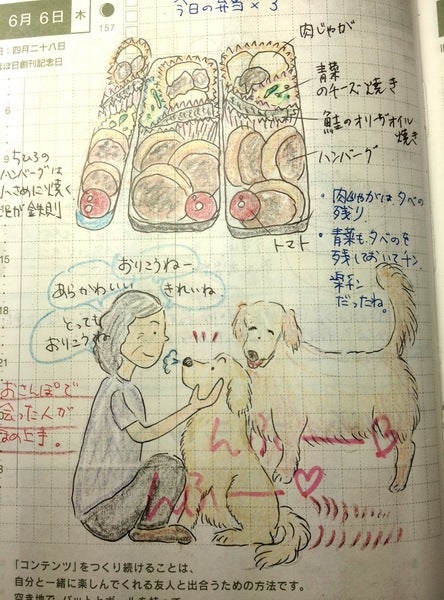 6月 6日 木
157
今日の弁当×3
日:四月二十八日
ぼ日創刊記念日
肉じゃが
青菜
のチーズ焼き
鮭のオリーブオイル
焼き
ハンバーグ
トマト
9 ちひろの
ハンバーグは
小さめに焼く
が鉄則
・肉じゃがは夕べの
残り
・青菜も夕べのを
残しておいてチン
楽チン
だったね。
おりこうねー
あらかわいい
きれいね
とっても
おりこうね
15
18
21
おさんぽで
会った人が
の上手。
んふーB
んふー♡
「コンテンツ」をつくり続けることは、
自分と一緒に楽しんでくれる友人と出合うための方法です。